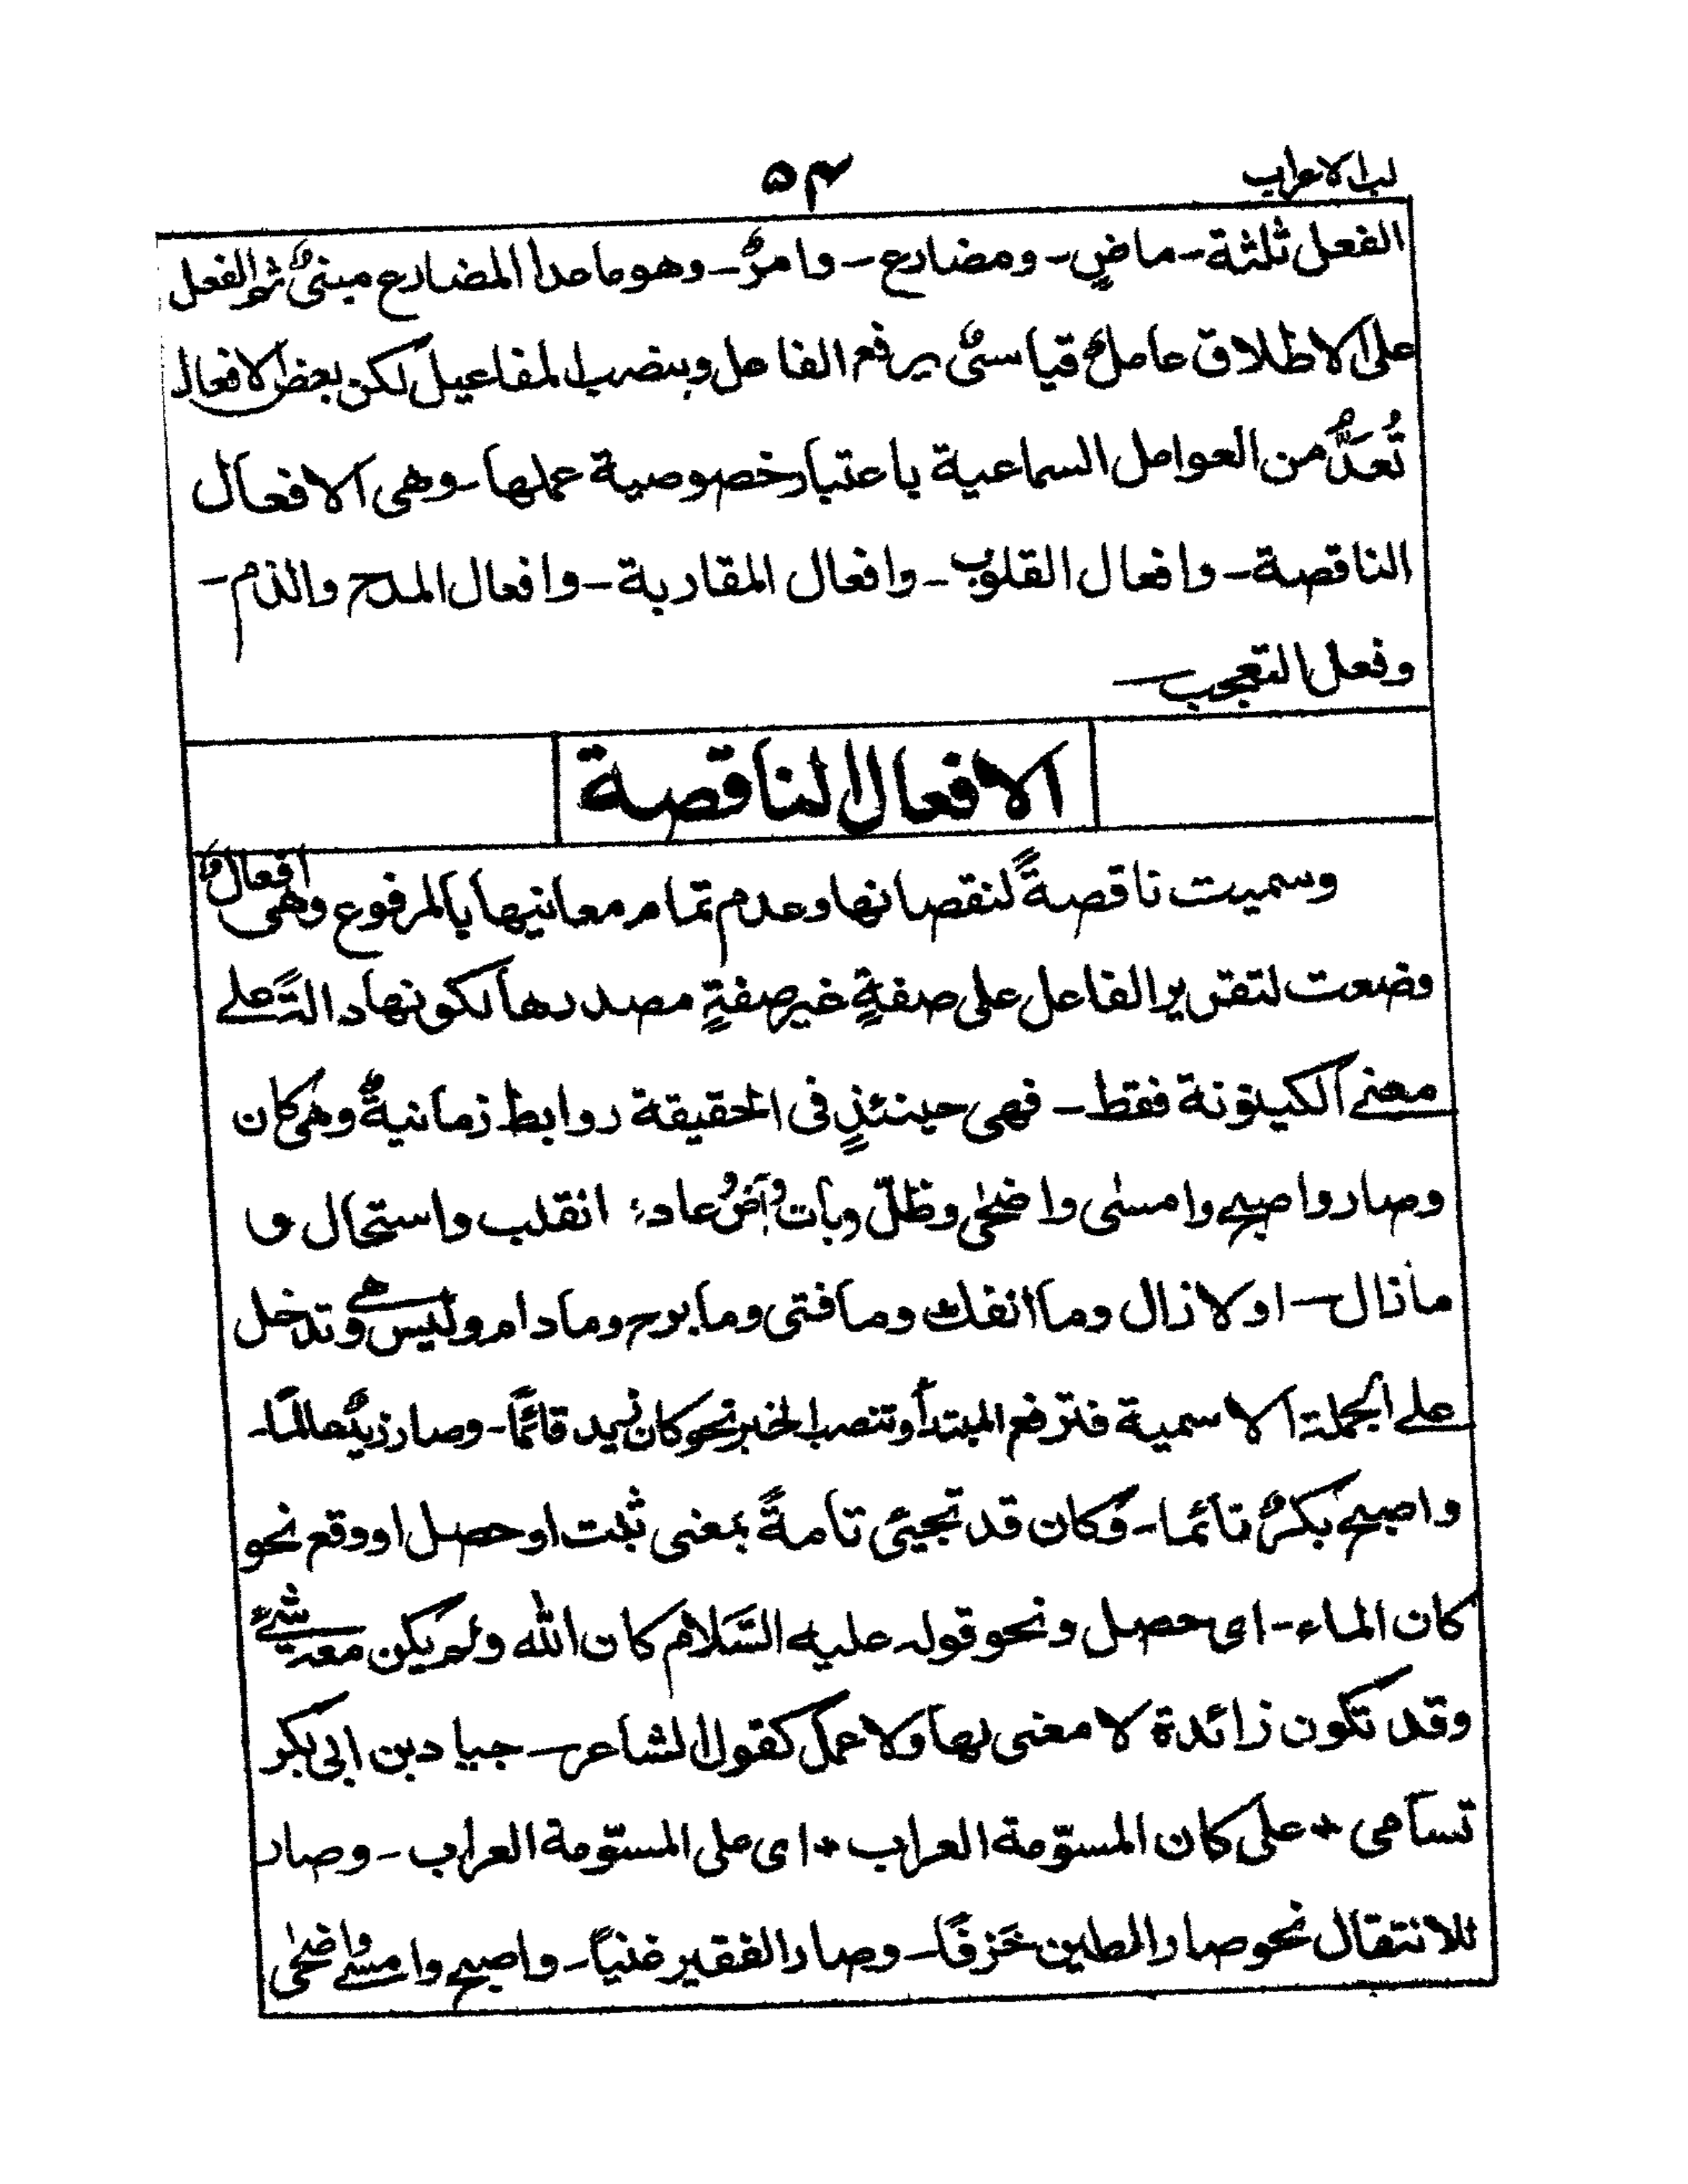 لب الاعراب
۵۴
الفعل ثلثة - ماضٍ - ومضارع - وامرٌ - وهو ماعدا المضارع مبنیٌ ثم الفعل
علی الاطلاق عاملٌ قیاسیٌ یرفع الفاعل وینصب المفاعیل لکن بعض الافعال
تُعَدُّ من العوامل السماعیة باعتبار خصوصیة عملها - وهی الافعال
الناقصة - وافعال القلوب - وافعال المقاربة - وافعال المدح والذم -
وفعل التعجب -
الافعال الناقصة
وسمیت ناقصةً لنقصانها وعدم تمام معانیها بالمرفوع وهی افعالٌ
وضعت لتقریر الفاعل علی صفةٍ غیر صفةٍ مصدرها لکونها دالةً علے
معنے الکینونة فقط - فهی حینئذٍ فی الحقیقة روابط زمانیةٌ وهی کان
وصار واصبح وامسٰی واضحٰی وظلّ وبات وآضَ عاد، انقلب واستحال و
مازال - او لازال وما انفك ومافتی ومابرح ومادام ولیس وهی تدخل
علے الجملة الاسمیة فترفع المبتدأ وتنصب الخبر نحو کان زید قائمًا - وصار زیدٌ عالمًا -
واصبح بکرٌ نائما - وکان قد تجیئ تامةً بمعنی ثبت او حصل او وقع نحو
کان الماء - ای حصل ونحو قوله علیه السَّلام کان الله ولم یکن معه شیءٌ
وقد تکون زائدة لا معنی لها ولا عمل کقول الشاعر - جیاد بن ابی بکر
تسامی + علی کان المسوّمة العراب + ای علی المسوّمة العراب - وصار
للانتقال نحو صار الطین خَزَفًا - وصار الفقیر غنیاً - واصبح وامسے واضحٰی